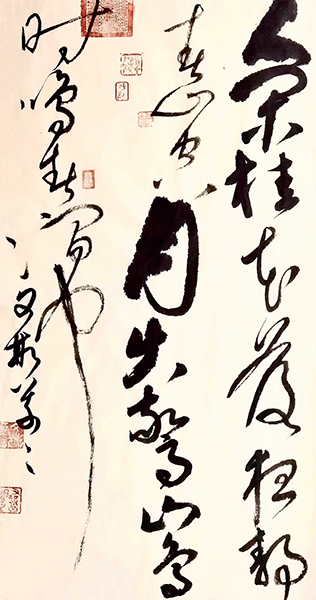 人閑桂花落夜靜
春山空月出驚山鳥
時鳴春澗中